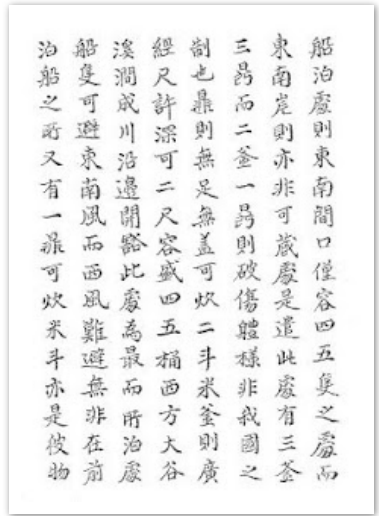 船泊處則東南間口僅容四五隻之處而
東南岸則亦非可藏處是遣此處有三釜
三鼎而二釜一鼎則破傷體樣非我國之
制也鼎則無足無盖可炊二斗米釜則廣
經尺許深可二尺容盛四五桶西方大谷
溪澗成川沿邊開豁此處為最而所泊處
船隻可避東南風而西風難避無非在前
泊船之所又有一鼎可炊米斗亦是彼物